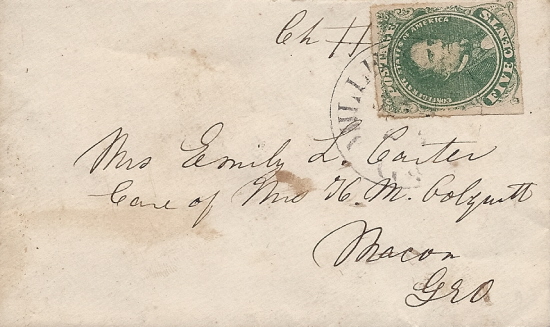 Ch 11
POSTAGE
CONFEDERATE STATES OF AMERICA
FIVE CENTS
Mrs Emily L. Carter
Care of Mrs H. M. Colquitt
Macon
Geo